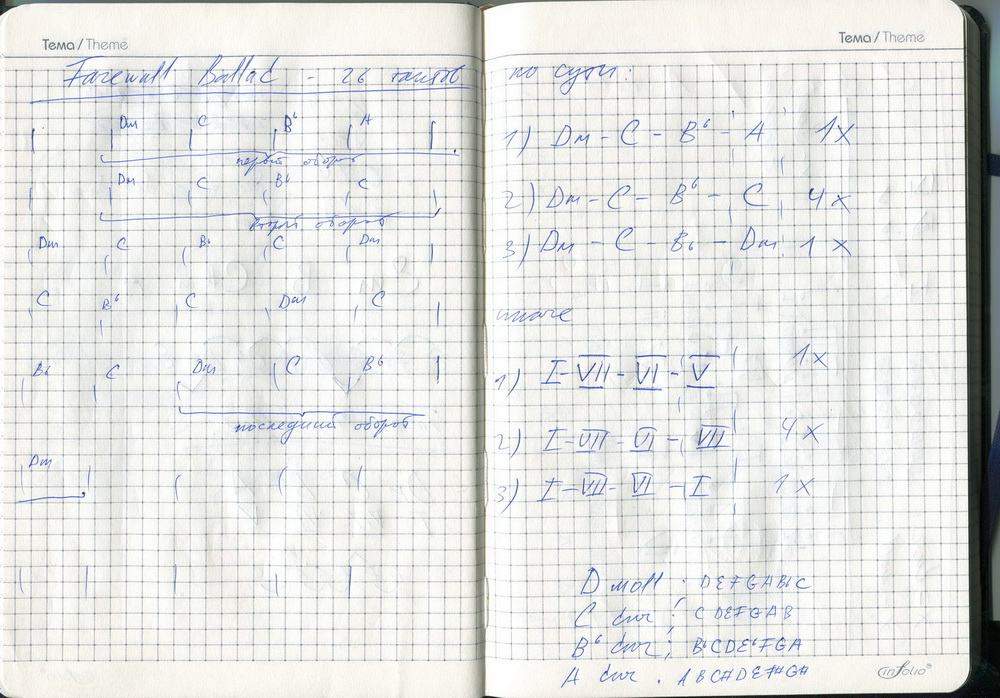 Тема / Theme
Farewall Ballad - 26 тактов
Dm C Bb A
первый оборот
Dm C Bb C
второй оборот
Dm C Bb C Dm
C Bb C Dm C
Bb C Dm C Bb
последний оборот
Dm
Тема / Theme
по сути:
1) Dm - C - Bb - A 1x
2) Dm - C - Bb - C 4x
3) Dm - C - Bb - Dm 1x
иначе
1) I - VII - VI - V 1x
2) I - VII - VI - VII 4x
3) I - VII - VI - I 1x
D moll : DEFGABbC
C dur : CDEFGAB
Bb dur : BbCDEbFGA
A dur : ABC#DEF#G#
infolio